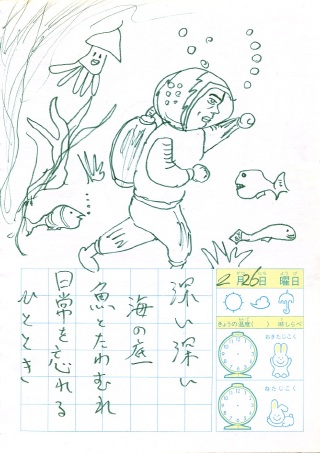 深い深い
海の底
魚とたわむれ
日常を忘れる
ひととき
2月26日 曜日
きょうの温度( ) 時しらべ
おきたじこく
ねたじこく